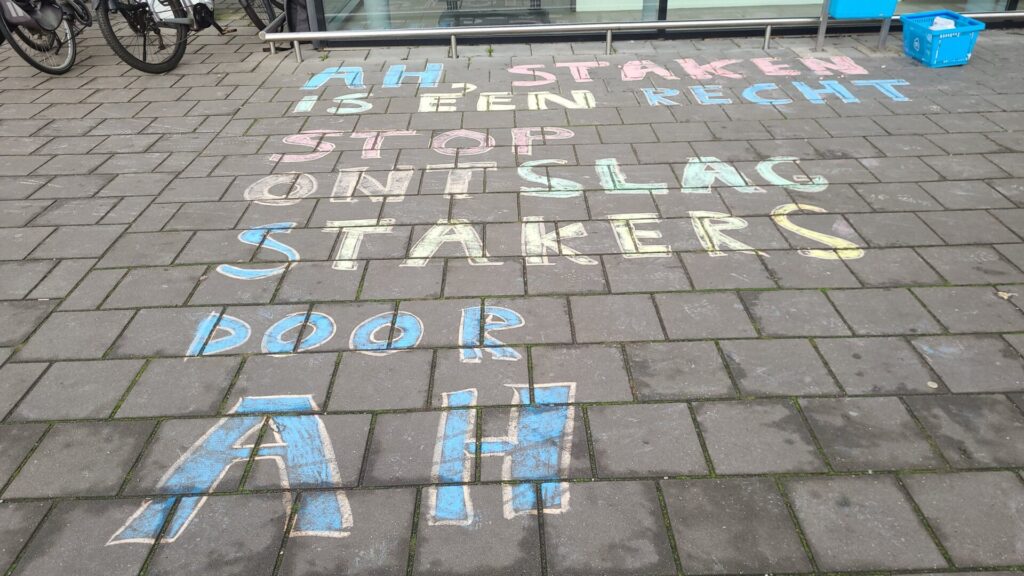 AH, STAKEN
IS EEN RECHT
STOP
ONTSLAG
STAKERS
DOOR
AH